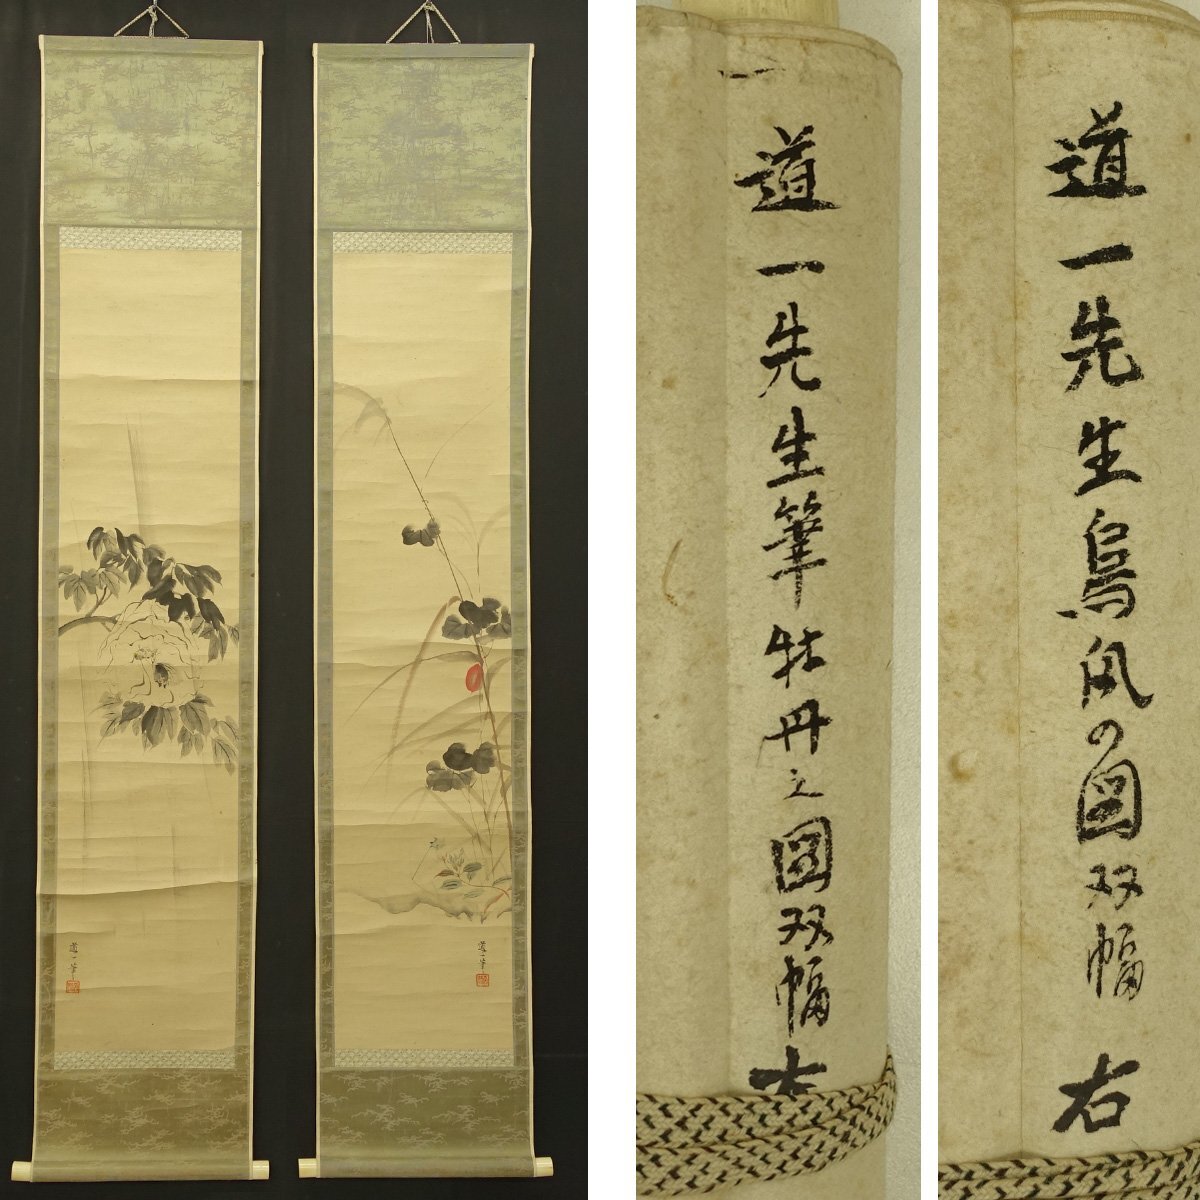 道一筆
道一筆
道一先生筆牡丹之図双幅
道一先生烏瓜の図双幅 右